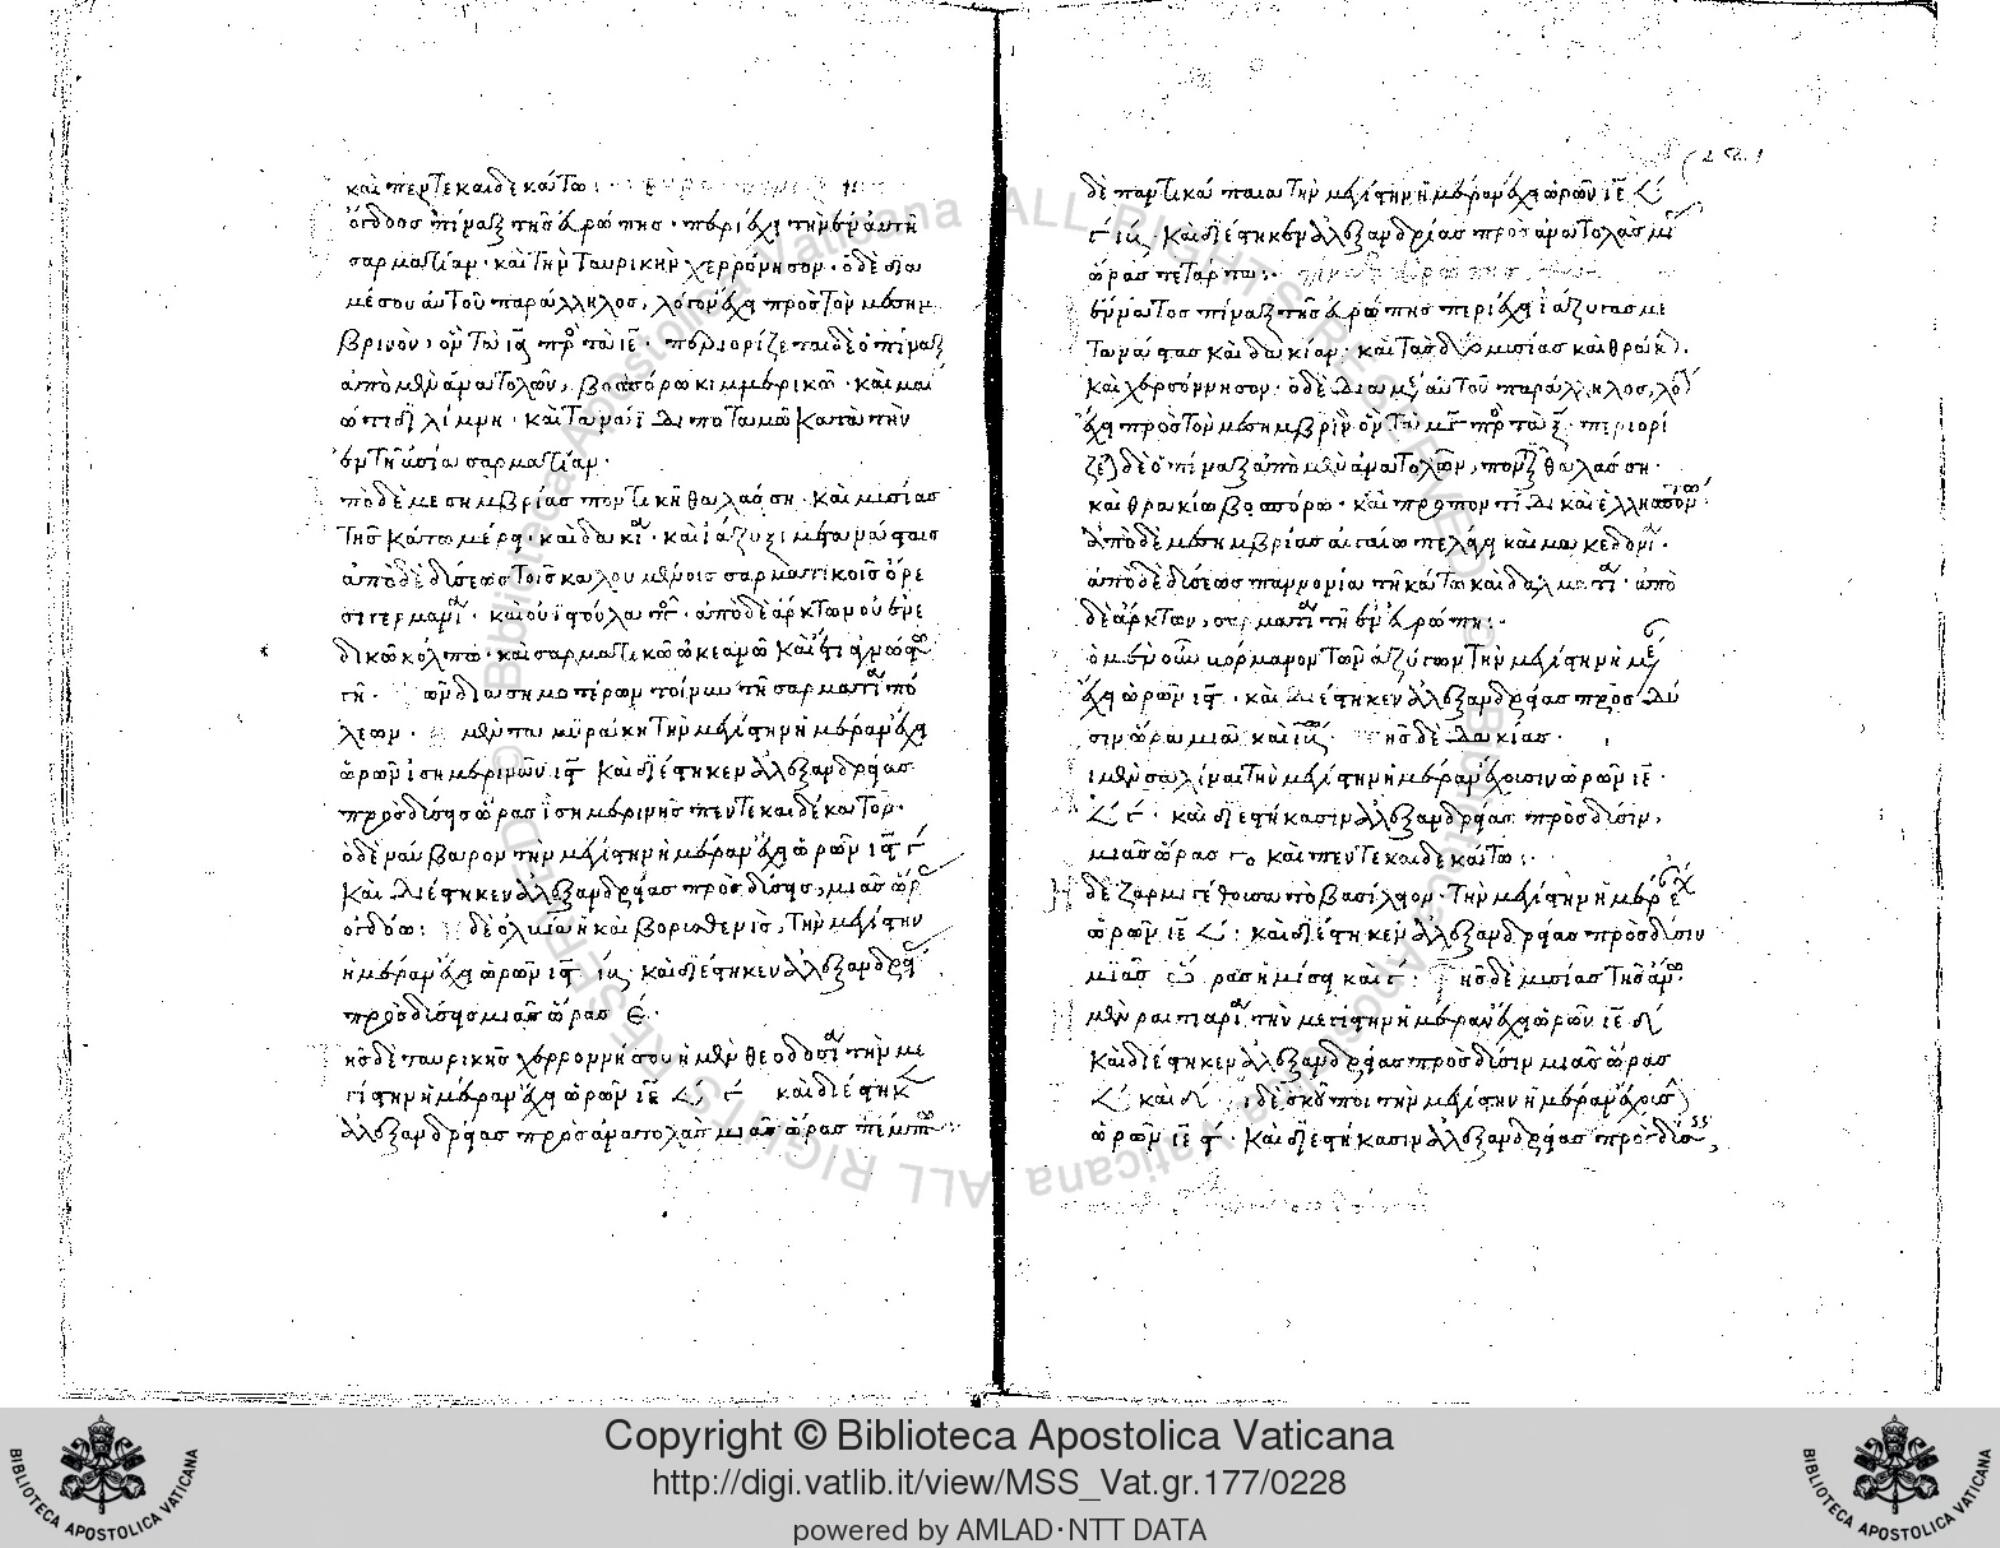 καὶ πεντεκαιδεκάτω:
ὄγδοος πίναξ τῆς εὐρώπης· περιέχει τὴν ἐν αὐτῆ
σαρματίαν· καὶ τὴν ταυρικὴν χερρόνησον· ὁ δὲ διὰ
μέσου αὐτοῦ παράλληλος, λόγον ἔχει πρὸς τὸν μεσημ
βρινὸν, ὃν τὰ ια πρὸς τὰ ιε· περιορίζεται δὲ ὁ πίναξ
ἀπὸ μὲν ἀνατολῶν, βοσπόρω κιμμερικῶ· καὶ μαι
ώτιδι λίμνη· καὶ ταναΐδι ποταμῶ κατὰ τὴν
ἐν τῆ ἀσία σαρματίαν·
πὸ δὲ μεσημβρίας ποντικῆ θαλάσση· καὶ μισίας
τῆς κάτω μέρει· καὶ δακία· καὶ ἰάζυξι μετανάσταις
ἀπὸ δὲ δύσεως τοῖς καλουμένοις σαρματικοῖς ὄρε
σι γερμανία· καὶ οὐϊστούλα ποτ· ἀπὸ δὲ ἄρκτων οὐενε
δικῶ κόλπω· καὶ σαρματικῶ ὠκεανῶ καὶ ἔτι ἀγνώστω
γῆ· ῶν διασημοτέρων τοίνυν τῆ σαρματία πό
λεων· μὲν ταμυράκη τὴν μεγίστην ἡμέραν ἔχει
ὡρῶν ἰσημερινῶν ις καὶ διέστηκεν ἀλεξανδρείας
πρὸς δύσεις ὥρας ἰσημερινῆς πεντεκαιδέκατον·
ὁ δὲ ναύβαρον τὴν μεγίστην ἡμέραν ἔχει ὡρῶν ις γ
καὶ διέστηκεν ἀλεξανδρείας πρὸς δύσεις, μιᾶς ὥρ
ογδόω: δὲ ὀλβία ἡ καὶ βορυσθενὶς, τὴν μεγίστην
ἡμέραν ἔχει ὡρῶν ις ιβ· καὶ διέστηκεν ἀλεξανδρεί
πρὸς δύσεις μιᾶς ὥρας ε·
ῆς δὲ ταυρικῆς χερρονήσου ἡ μὲν θεοδοσία τὴν με
γίστην ἡμέραν ἔχει ὡρῶν ιε 𐅵 γ καὶ διέστηκ
ἀλεξανδρείας πρὸς ἀνατολὰς μιᾶς ὥρας πέμπτω
δὲ παντικάπαια τὴν μεγίστην ἡμέραν ἔχει ὡρῶν ιε 𐅵
γ ιβ· καὶ διέστηκεν ἀλεξανδρείας πρὸς ἀνατολὰς μι
ὥρας τετάρτω:
ἔννατος πίναξ τῆς εὐρώπης περιέχει ἰάζυγας με
τανάστας καὶ δακίαν· καὶ τὰς δύο μισίας καὶ θράκ
καὶ χερσόννησον· ὁ δὲ διὰ μέσ αὐτοῦ παράλληλος, λόγ
ἔχει πρὸς τὸν μεσημβρινὸν ὃν τὰ μγ πρὸς τὰ ξ· περιορί
ζεται δὲ ὁ πίναξ ἀπὸ μὲν ἀνατολῶν, ποντικῆ θαλάσση·
καὶ θρακίω βοσπόρω· καὶ προποντίδι καὶ ἑλλησπόν
ἀπὸ δὲ μεσημβρίας αἰγαίω πελάγει καὶ μακεδονία·
ἀπὸ δὲ δύσεως παννονία τῆ κάτω καὶ δαλματία· ἀπὸ
δὲ ἄρκτων, σαρματία τῆ ἐν εὐρώπη:
ὁ μὲν οὖν κόρμανον τῶν ἰαζύγων τὴν μεγίστην ἡμέ
ἔχει ὡρῶν ις· καὶ διέστηκεν ἀλεξανδρείας πρὸς δύ
σιν ὥρα μιᾶ καὶ ιβ· ῆς δὲ δακίας·
ι μὲν σαλίναι τὴν μεγίστην ἡμέραν ἔχουσιν ὡρῶν ιε·
𐅵 γ· καὶ διεστήκασιν ἀλεξανδρείας πρὸς δύσιν,
μιᾶς ὥρας γο καὶ πεντεκαιδεκάτω:
δὲ ζαρμιγέθουσα τὸ βασίλειον· τὴν μεγίστην ἡμέρ ἔχ
ὡρῶν ιε 𐅵· καὶ διέστηκεν ἀλεξανδρείας πρὸς δύσιν
μιᾶς ὥρας ἡμίσει καὶ γ· ῆς δὲ μισίας τῆς ἄνω
μὲν ραιτιαρία τὴν μεγίστην ἡμέραν ἔχει ὡρῶν ιε δ
καὶ διέστηκεν ἀλεξανδρείας πρὸς δύσιν μιᾶς ὥρας
𐅵 καὶ δ ι δὲ σκοῦποι τὴν μεγίστην ἡμέραν ἔχουσ
ὡρῶν ιε ϛ· καὶ διεστήκασιν ἀλεξανδρείας πρὸς δύσ
Copyright © Biblioteca Apostolica Vaticana
http://digi.vatlib.it/view/MSS_Vat.gr.177/0228
powered by AMLAD·NTT DATA
BIBLIOTECA APOSTOLICA VATICANA
BIBLIOTECA APOSTOLICA VATICANA
© Biblioteca Apostolica Vaticana ALL RIGHTS RESERVED © Biblioteca Apostolica Vaticana ALL RIGHTS RESERVED